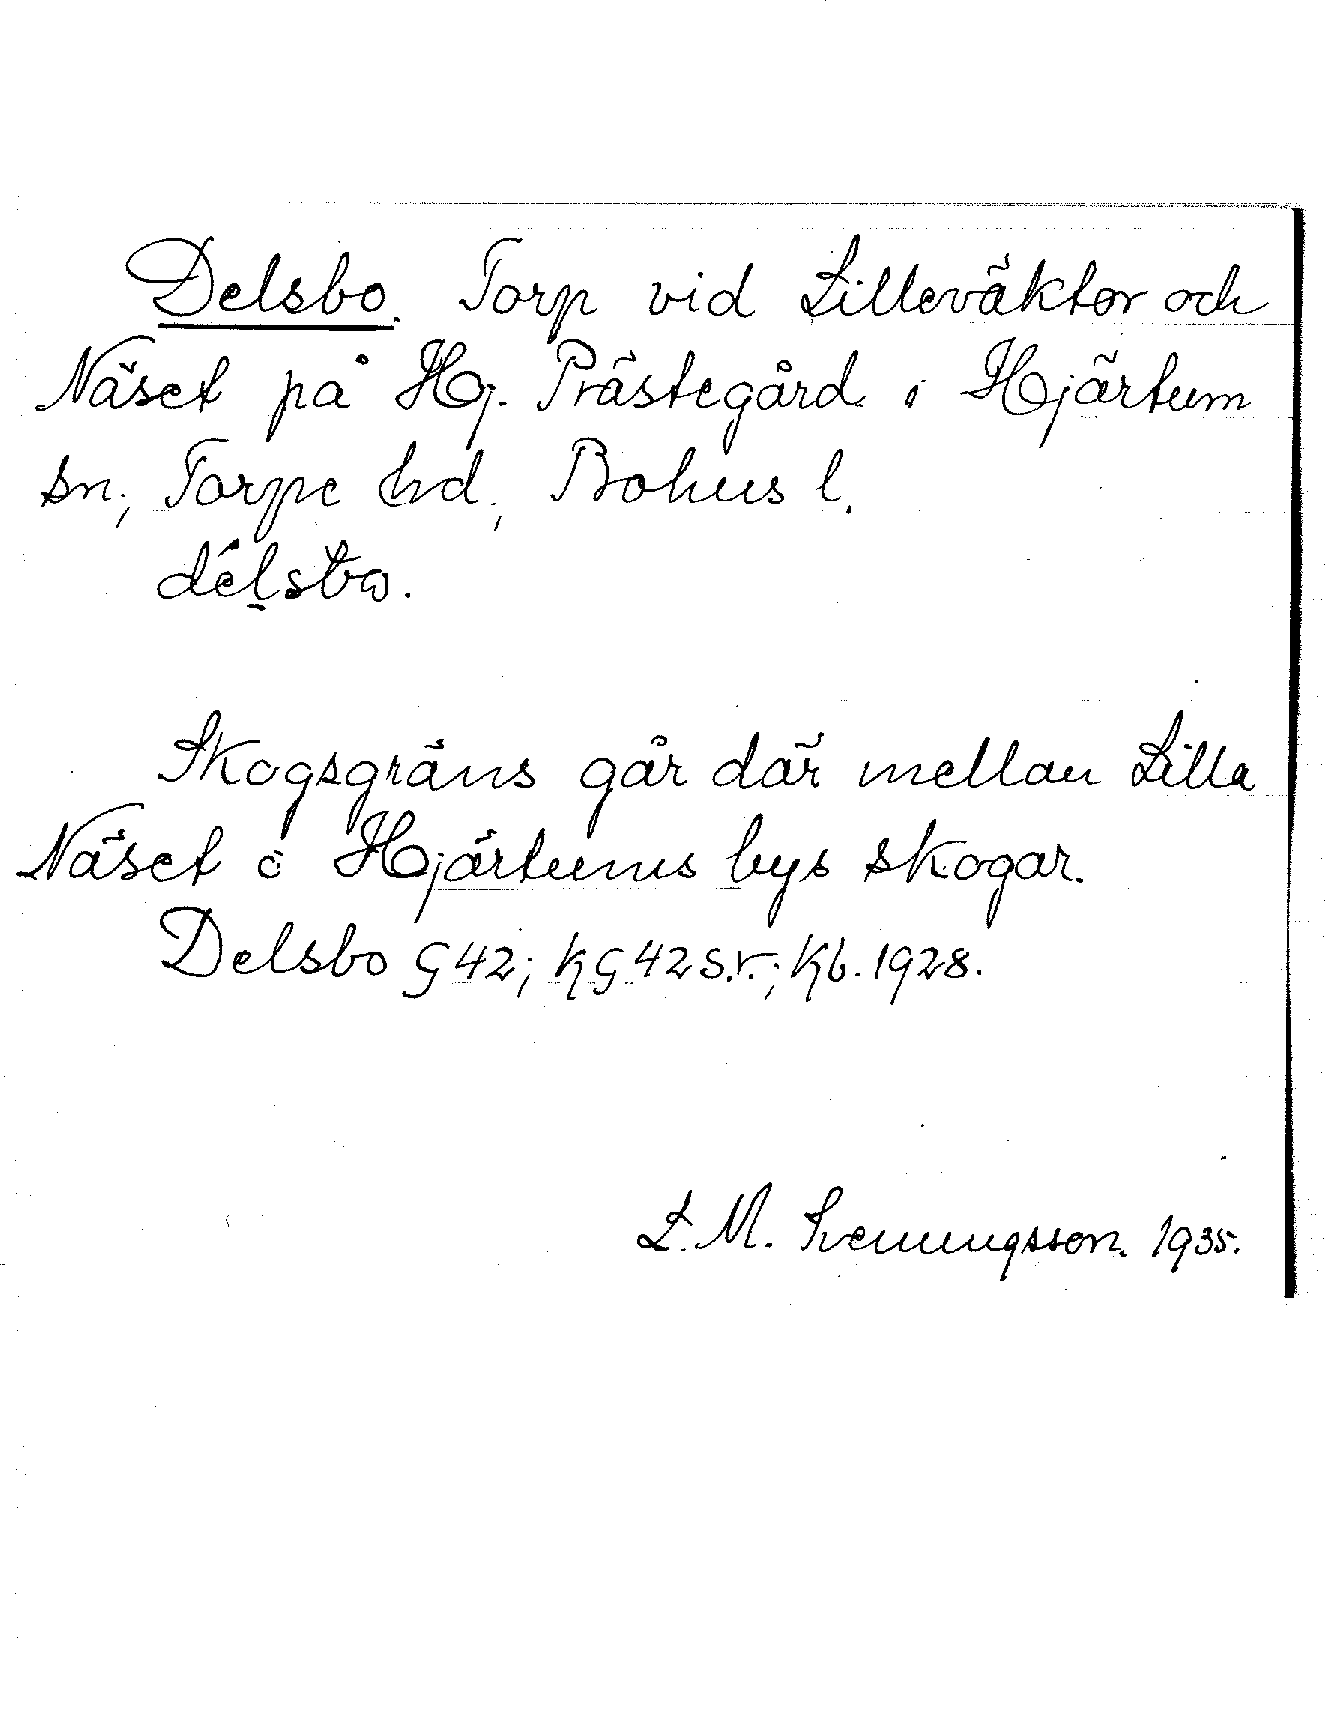 Delsbo. Torp vid Lilleväktor och
Näset på Hj. Prästegård i Hjärtum
sn, Torpe hd, Bohus l.
Skogsgräns går där mellan Lilla
Näset o Hjärtums bys skogar.
Delsbo G 42; KG 42 s.v.; Kb. 1928.
L. M. Svenungsson. 1935.